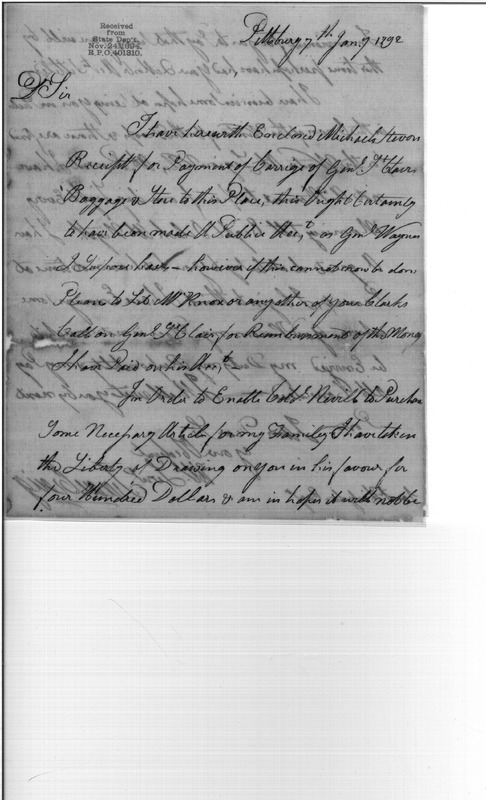 Received
from
State Dep't.
Nov. 24, 1894
R.P.O. 401310.
Pittsburg 7th Jany 1792
Dr Sir
I have herewith Enclosed Michael
Receipt for Payment of Carrige of Genl. St Clairs
Baggage & Store to this Place, this Ought Certainly
to have been made A Public Acct. or Genl. Waynes
I Suppose has — however if this cannot now be done
Please to Let Mr Knox or any other of your Clarks
Call on Genl. St. Clair for Reimbursment of the Money
I have Paid on his Acct.
In Order to Enable Colo. Nevill to Purchase
Some Necessary Article for my Family I have taken
the Liberty of Drawing on you in his favour for
four Hundred Dollars & am in hopes it will not be